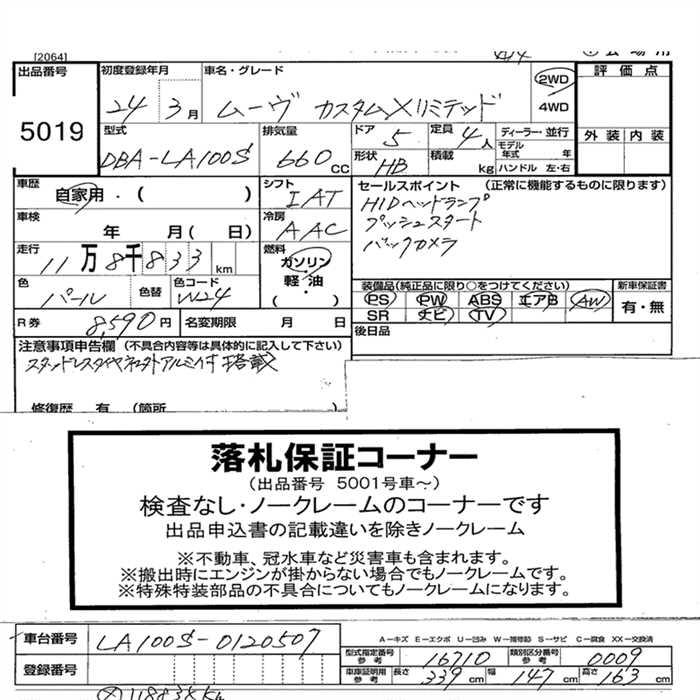 [2064]
出品番号 初度登録年月 車名・グレード 2WD 評価点
5019 24年3月 ムーヴ カスタムXリミテッド 4WD
型式 排気量 ドア 5 定員 4人 ディーラー・並行 外装 内装
DBA-LA100S 660cc 形状 HB 積載 kg モデル年式 年 ハンドル 左・右
車歴 自家用・( ) シフト IAT セールスポイント (正常に機能するものに限ります)
車検 年 月(日) 冷房 AAC HIDヘッドランプ
プッシュスタート
バックカメラ
走行 11万8千833km 燃料 ガソリン・軽油・( )
色 パール 色替 色コード W24 装備品(純正品に限り○をつけてください) 新車保証書
PS PW ABS エアB AW 有・無
SR ナビ TV
R券 8,590円 名変期限 月 日 後日品
注意事項申告欄 (不具合内容等は具体的に記入して下さい)
修復歴 有 (箇所
落札保証コーナー
(出品番号 5001号車~)
検査なし・ノークレームのコーナーです
出品申込書の記載違いを除きノークレーム
※不動車、冠水車など災害車も含まれます。
※搬出時にエンジンが掛からない場合でもノークレームです。
※特殊特装部品の不具合についてもノークレームになります。
Aーキズ Eーエクボ Uー凹み Wー補修跡 Sーサビ Cー腐食 XXー交換済
車台番号 LA100S-0120507 型式指定番号 参考 16710 類別区分番号 参考 0009
登録番号 車庫証明用 参考 長さ 339cm 幅 147cm 高さ 163cm